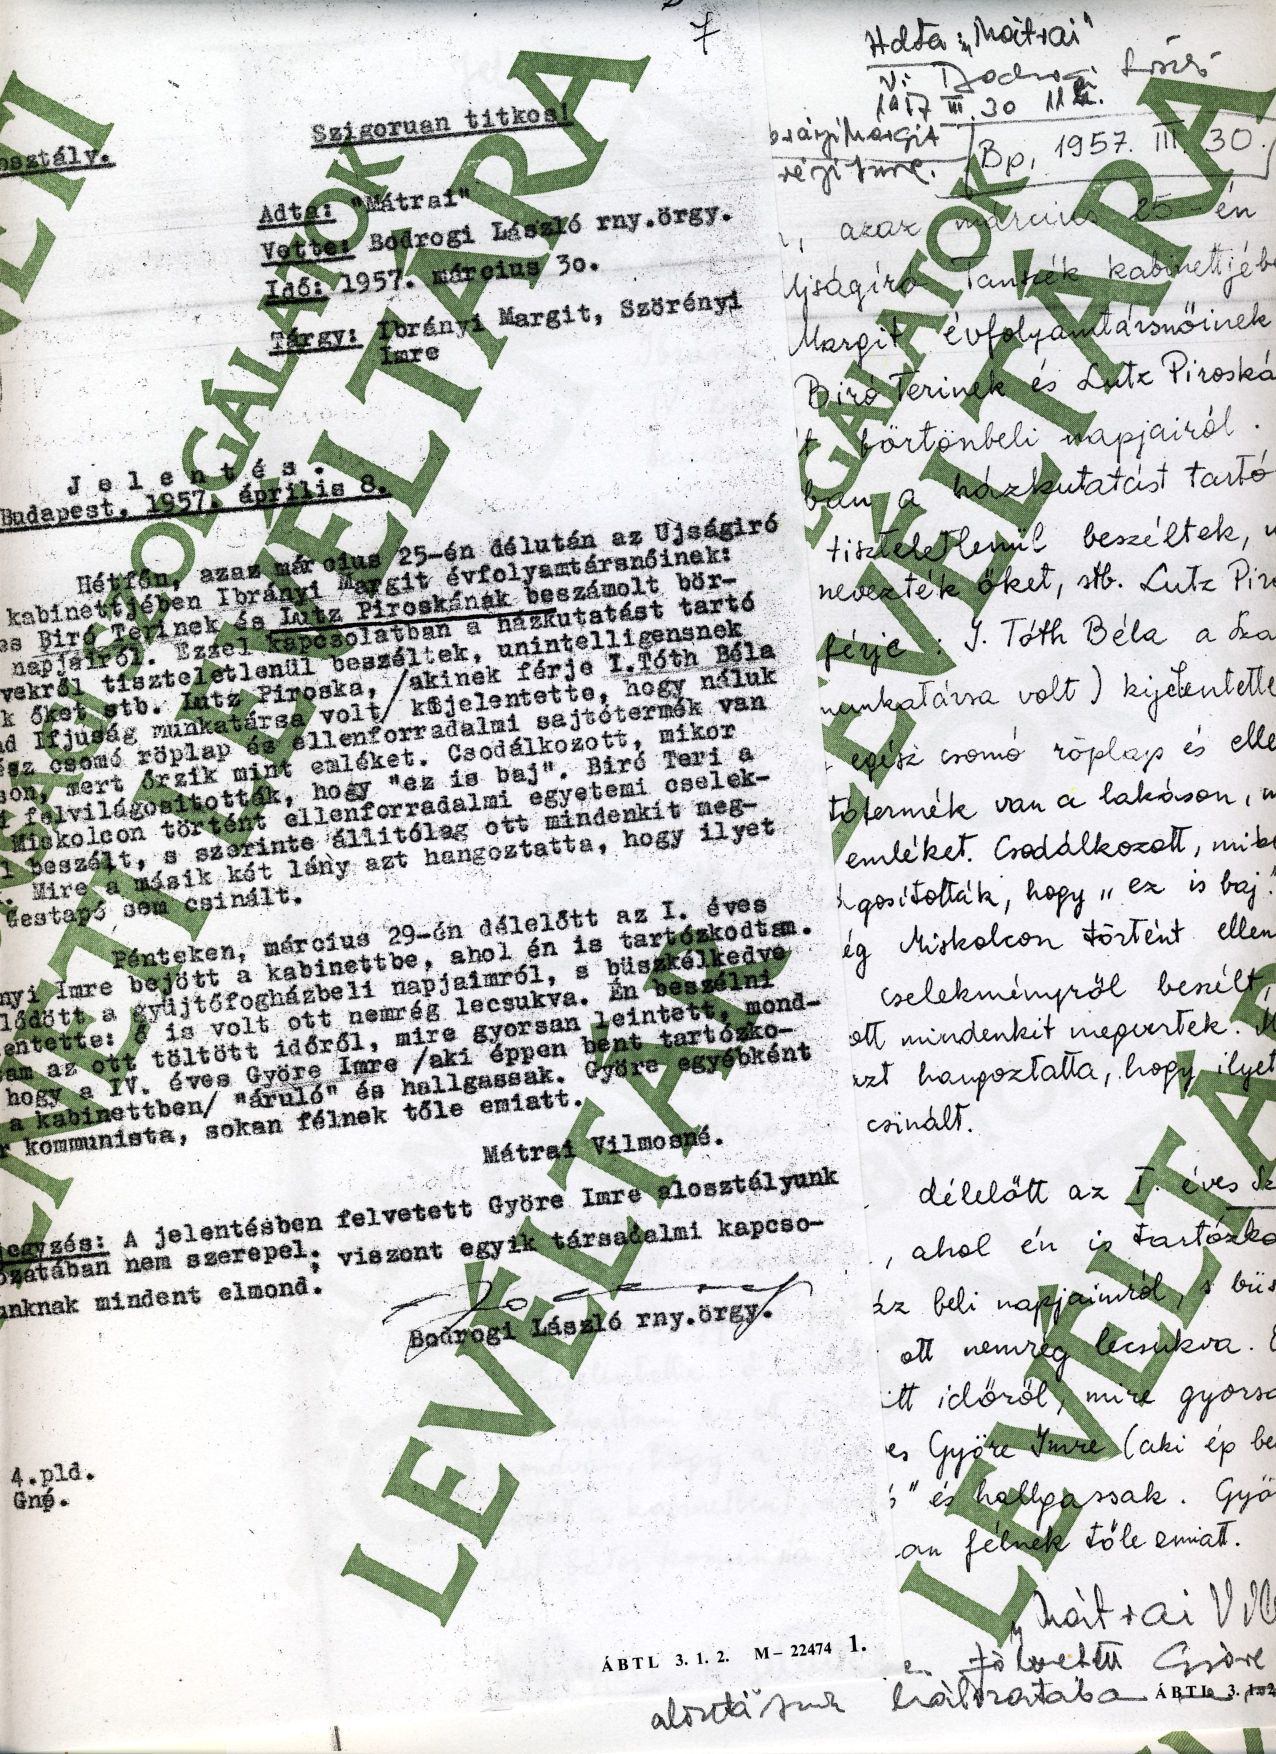 7
Szigoruan titkos!
osztály.
Adta: "Mátrai"
Vette: Bodrogi László rny.örgy.
Idő: 1957. március 30.
Tárgy: Ibrányi Margit, Szörényi
Imre
Jelentés.
Budapest, 1957. április 8.
Hétfőn, azaz március 25-én délután az Ujságiró
kabinettjében Ibrányi Margit évfolyamtársnőinek:
es Biró Terinek és Lutz Piroskának beszámolt bör-
napjairól. Ezzel kapcsolatban a házkutatást tartó
vekről tiszteletlenül beszéltek, unintelligensnek
k őket stb. Lutz Piroska, /akinek férje I.Tóth Béla
ad Ifjuság munkatársa volt/ kijelentette, hogy náluk
ész csomó röplap és ellenforradalmi sajtótermék van
son, mert őrzik mint emléket. Csodálkozott, mikor
i felvilágositották, hogy "ez is baj". Biró Teri a
Miskolcon történt ellenforradalmi egyetemi cselek-
l beszélt, s szerinte állitólag ott mindenkit meg-
. Mire a másik két lány azt hangoztatta, hogy ilyet
Gestapó sem csinált.
Pénteken, március 29-én délelőtt az I. éves
nyi Imre bejött a kabinettbe, ahol én is tartózkodtam.
lődött a gyüjtőfogházbeli napjaimról, s büszkélkedve
entette: ő is volt ott nemrég lecsukva. Én beszélni
am az ott töltött időről, mire gyorsan leintett, mond-
hogy a IV. éves Györe Imre /aki éppen bent tartózko-
a kabinettben/ "áruló" és hallgassak. Györe egyébként
r kommunista, sokan félnek tőle emiatt.
Mátrai Vilmosné.
egyzés: A jelentésben felvetett Györe Imre alosztályunk
ózatában nem szerepel, viszont egyik társadalmi kapcso-
unknak mindent elmond.
Bodrogi László rny.örgy.
4.pld.
Gné.
ÁBTL 3. 1. 2. M – 22474 1.
Adta: „Mátrai"
V: Bodrogi László
1957 III. 30 11h.
brányi Margit
Bp, 1957. III. 30.
, azaz március 25-én
Ujságiró Tanszék kabinettjébe
Margit évfolyamtársnőinek
Biró Terinek és Lutz Piroská
t börtönbeli napjairól.
ban a házkutatást tartó
tiszteletlenül beszéltek, u
nevezték őket, stb. Lutz Piro
férje : I. Tóth Béla a Sza
munkatársa volt) kijelentette
egész csomó röplap és elle
tótermék van a lakáson, m
emléket. Csodálkozott, mik
gositották, hogy „ez is baj."
ég Miskolcon történt ellen
cselekményről beszélt,
ott mindenkit megvertek. M
azt hangoztatta, hogy ilyet
csinált.
délelőtt az I. éves Sz
, ahol én is tartózko
áz beli napjaimról, s büs
ott nemrég lecsukva. É
tt időről, mire gyorsa
es Györe Imre (aki ép be
ó" és hallgassak. Györ
an félnek tőle emiatt.
„Mátrai Vil
Györe
alosztályunk hálózatába
ÁBTL 3. 1. 2
SZOLGÁLATOK
LEVÉLTÁRA